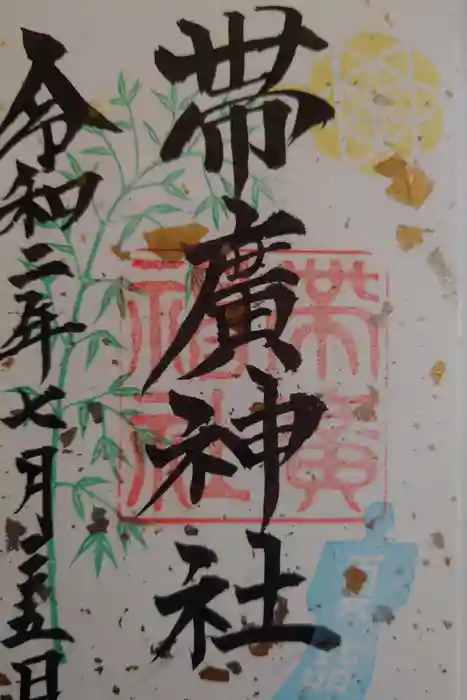 帯廣神社
帯廣
神社
令和二年七月 五日